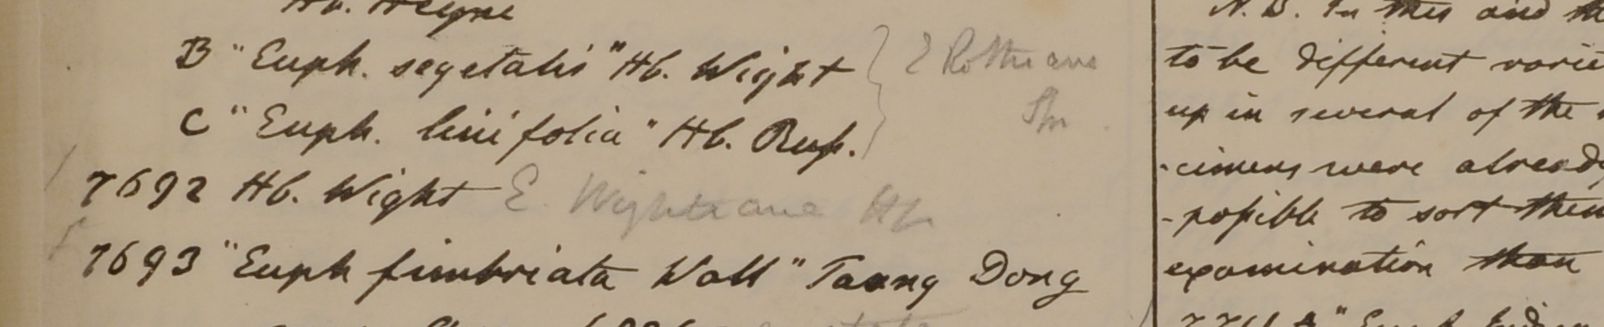 Hb. Heyne
B "Euph. segetalis" Hb. Wight } E Rothiana
Spr.
C "Euph. linifolia" Hb. Rup.
7692 Hb. Wight E. Wightiana Hb.
7693 "Euph fimbriata Wall" Taong Dong
N.B. In this and
to be different
up in several of the
-cimens were
-possible to sort
examination than